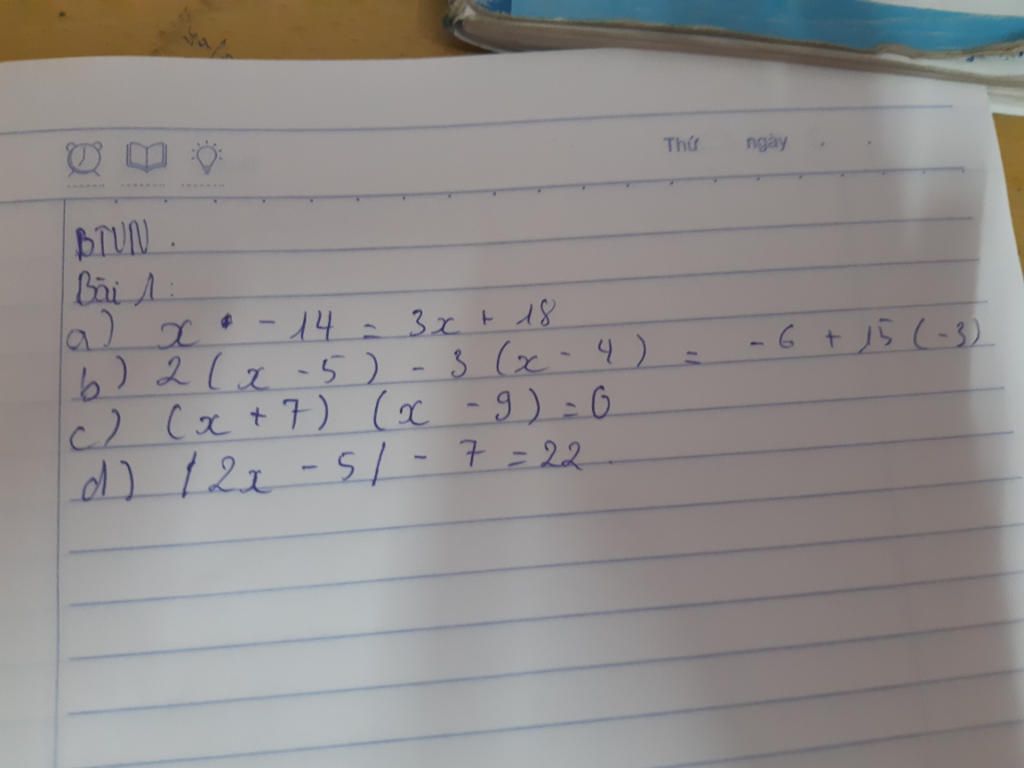 Thứ ngày
BTVN.
Bài 1:
a) x - 14 = 3x + 18
b) 2 (x - 5) - 3 (x - 4) = -6 + 15 (-3)
c) (x + 7) (x - 9) = 0
d) |2x - 5| - 7 = 22.